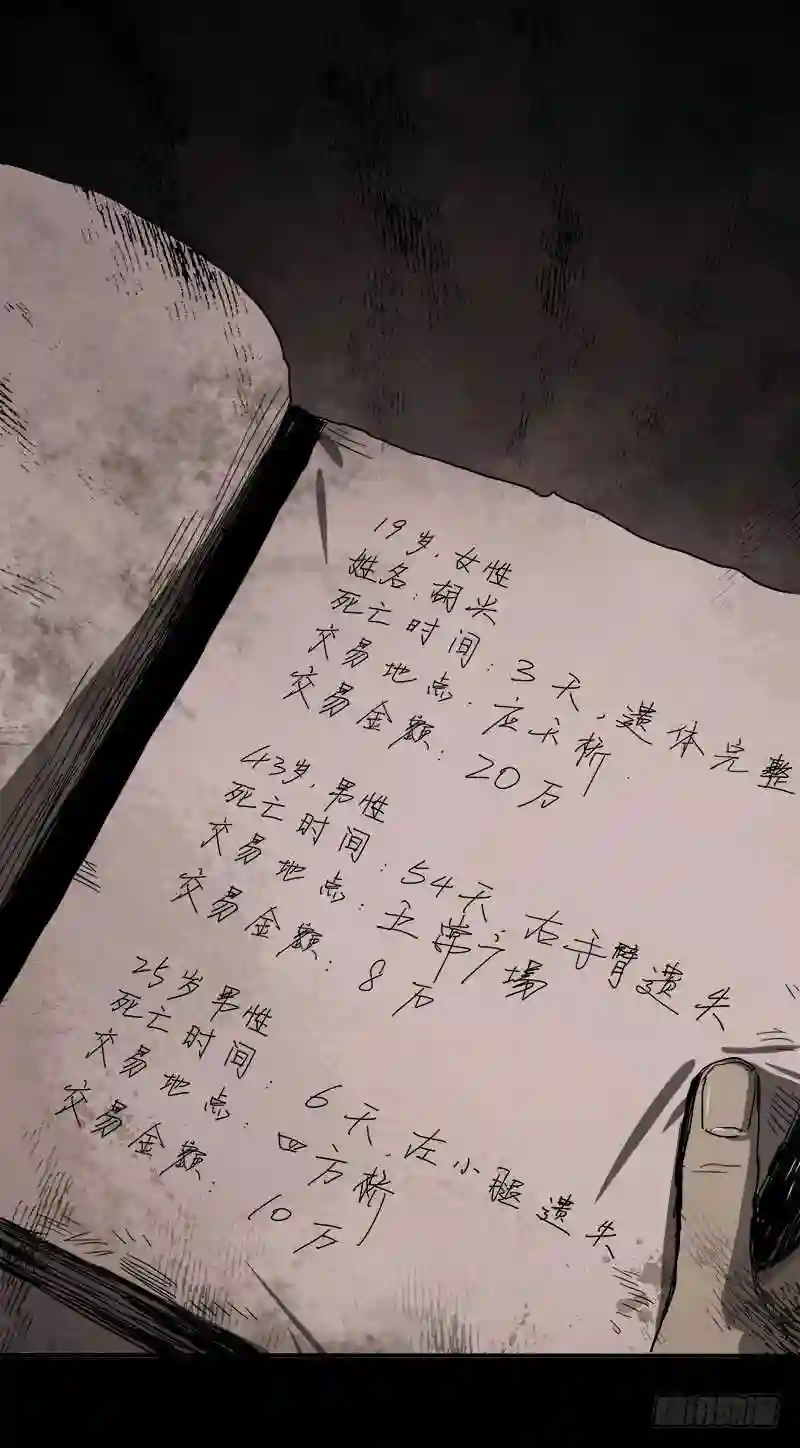 19岁,女性
姓名:胡兴
死亡时间:3天,遗体完整
交易地点:应天桥
交易金额:20万
43岁,男性
死亡时间:54天,右手臂遗失
交易地点:主常广场
交易金额:8万
25岁男性
死亡时间:6天,左小腿遗失
交易地点:四方桥
交易金额:10万